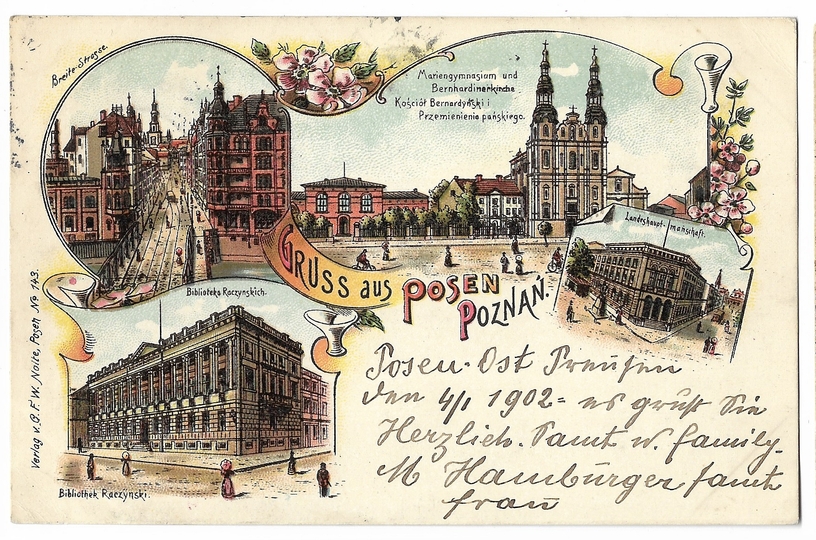 Breite-Strasse.
Mariengymnasium und
Bernhardinerkirche
Kościół Bernardyński i
Przemienienia pańskiego.
Landeshaupt-manschaft.
GRUSS aus POSEN
POZNAŃ.
Biblioteka Raczynskich.
Bibliothek Raczynski.
Verlag v. G.F.W. Nolte, Posen No 143.
Posen-Ost Preußen
den 4/1 1902 = es grüßt Sie
Herzlich. Samt w. family.
M Hamburger samt
frau